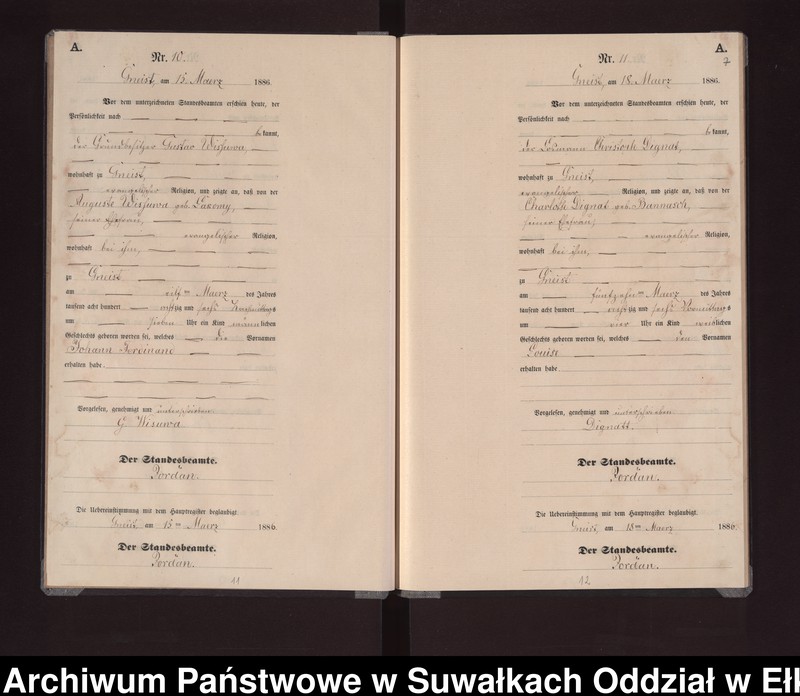 A.
Nr. 10.
Gneist, am 15. Maerz 1886.
Vor dem unterzeichneten Standesbeamten erschien heute, der
Persönlichkeit nach
be kannt,
der Grundbesitzer Gustav Wissuwa,
wohnhaft zu Gneist,
evangelischer Religion, und zeigte an, daß von der
Auguste Wissuwa geb.
seiner Ehefrau,
evangelischer Religion,
wohnhaft bei ihm,
zu Gneist
am elf ten Maerz des Jahres
tausend acht hundert acht zig und sechs Nachmittags
um sieben Uhr ein Kind männ lichen
Geschlechts geboren worden sei, welches die Vornamen
Johann Ferdinand
erhalten habe.
Vorgelesen, genehmigt und unterschrieben
G. Wisuwa
Der Standesbeamte.
Jordan.
Die Uebereinstimmung mit dem Hauptregister beglaubigt.
Gneist, am 15ten Maerz 1886.
Der Standesbeamte.
Jordan.
11
A.
7
Nr. 11.
Gneist, am 18. Maerz 1886.
Vor dem unterzeichneten Standesbeamten erschien heute, der
Persönlichkeit nach
be kannt,
der Losmann Christoph Dignat,
wohnhaft zu Gneist,
evangelischer Religion, und zeigte an, daß von der
Charlotte Dignat geb. Bannasch,
seiner Ehefrau,
evangelischer Religion,
wohnhaft bei ihm,
zu Gneist
am fünfzehn ten Maerz des Jahres
tausend acht hundert acht zig und sechs Vormittags
um vier Uhr ein Kind weib lichen
Geschlechts geboren worden sei, welches den Vornamen
Louise
erhalten habe.
Vorgelesen, genehmigt und unterschrieben
Dignatt.
Der Standesbeamte.
Jordan.
Die Uebereinstimmung mit dem Hauptregister beglaubigt.
Gneist, am 18ten Maerz 1886
Der Standesbeamte.
Jordan.
12
Archiwum Państwowe w Suwałkach Oddział w Eł